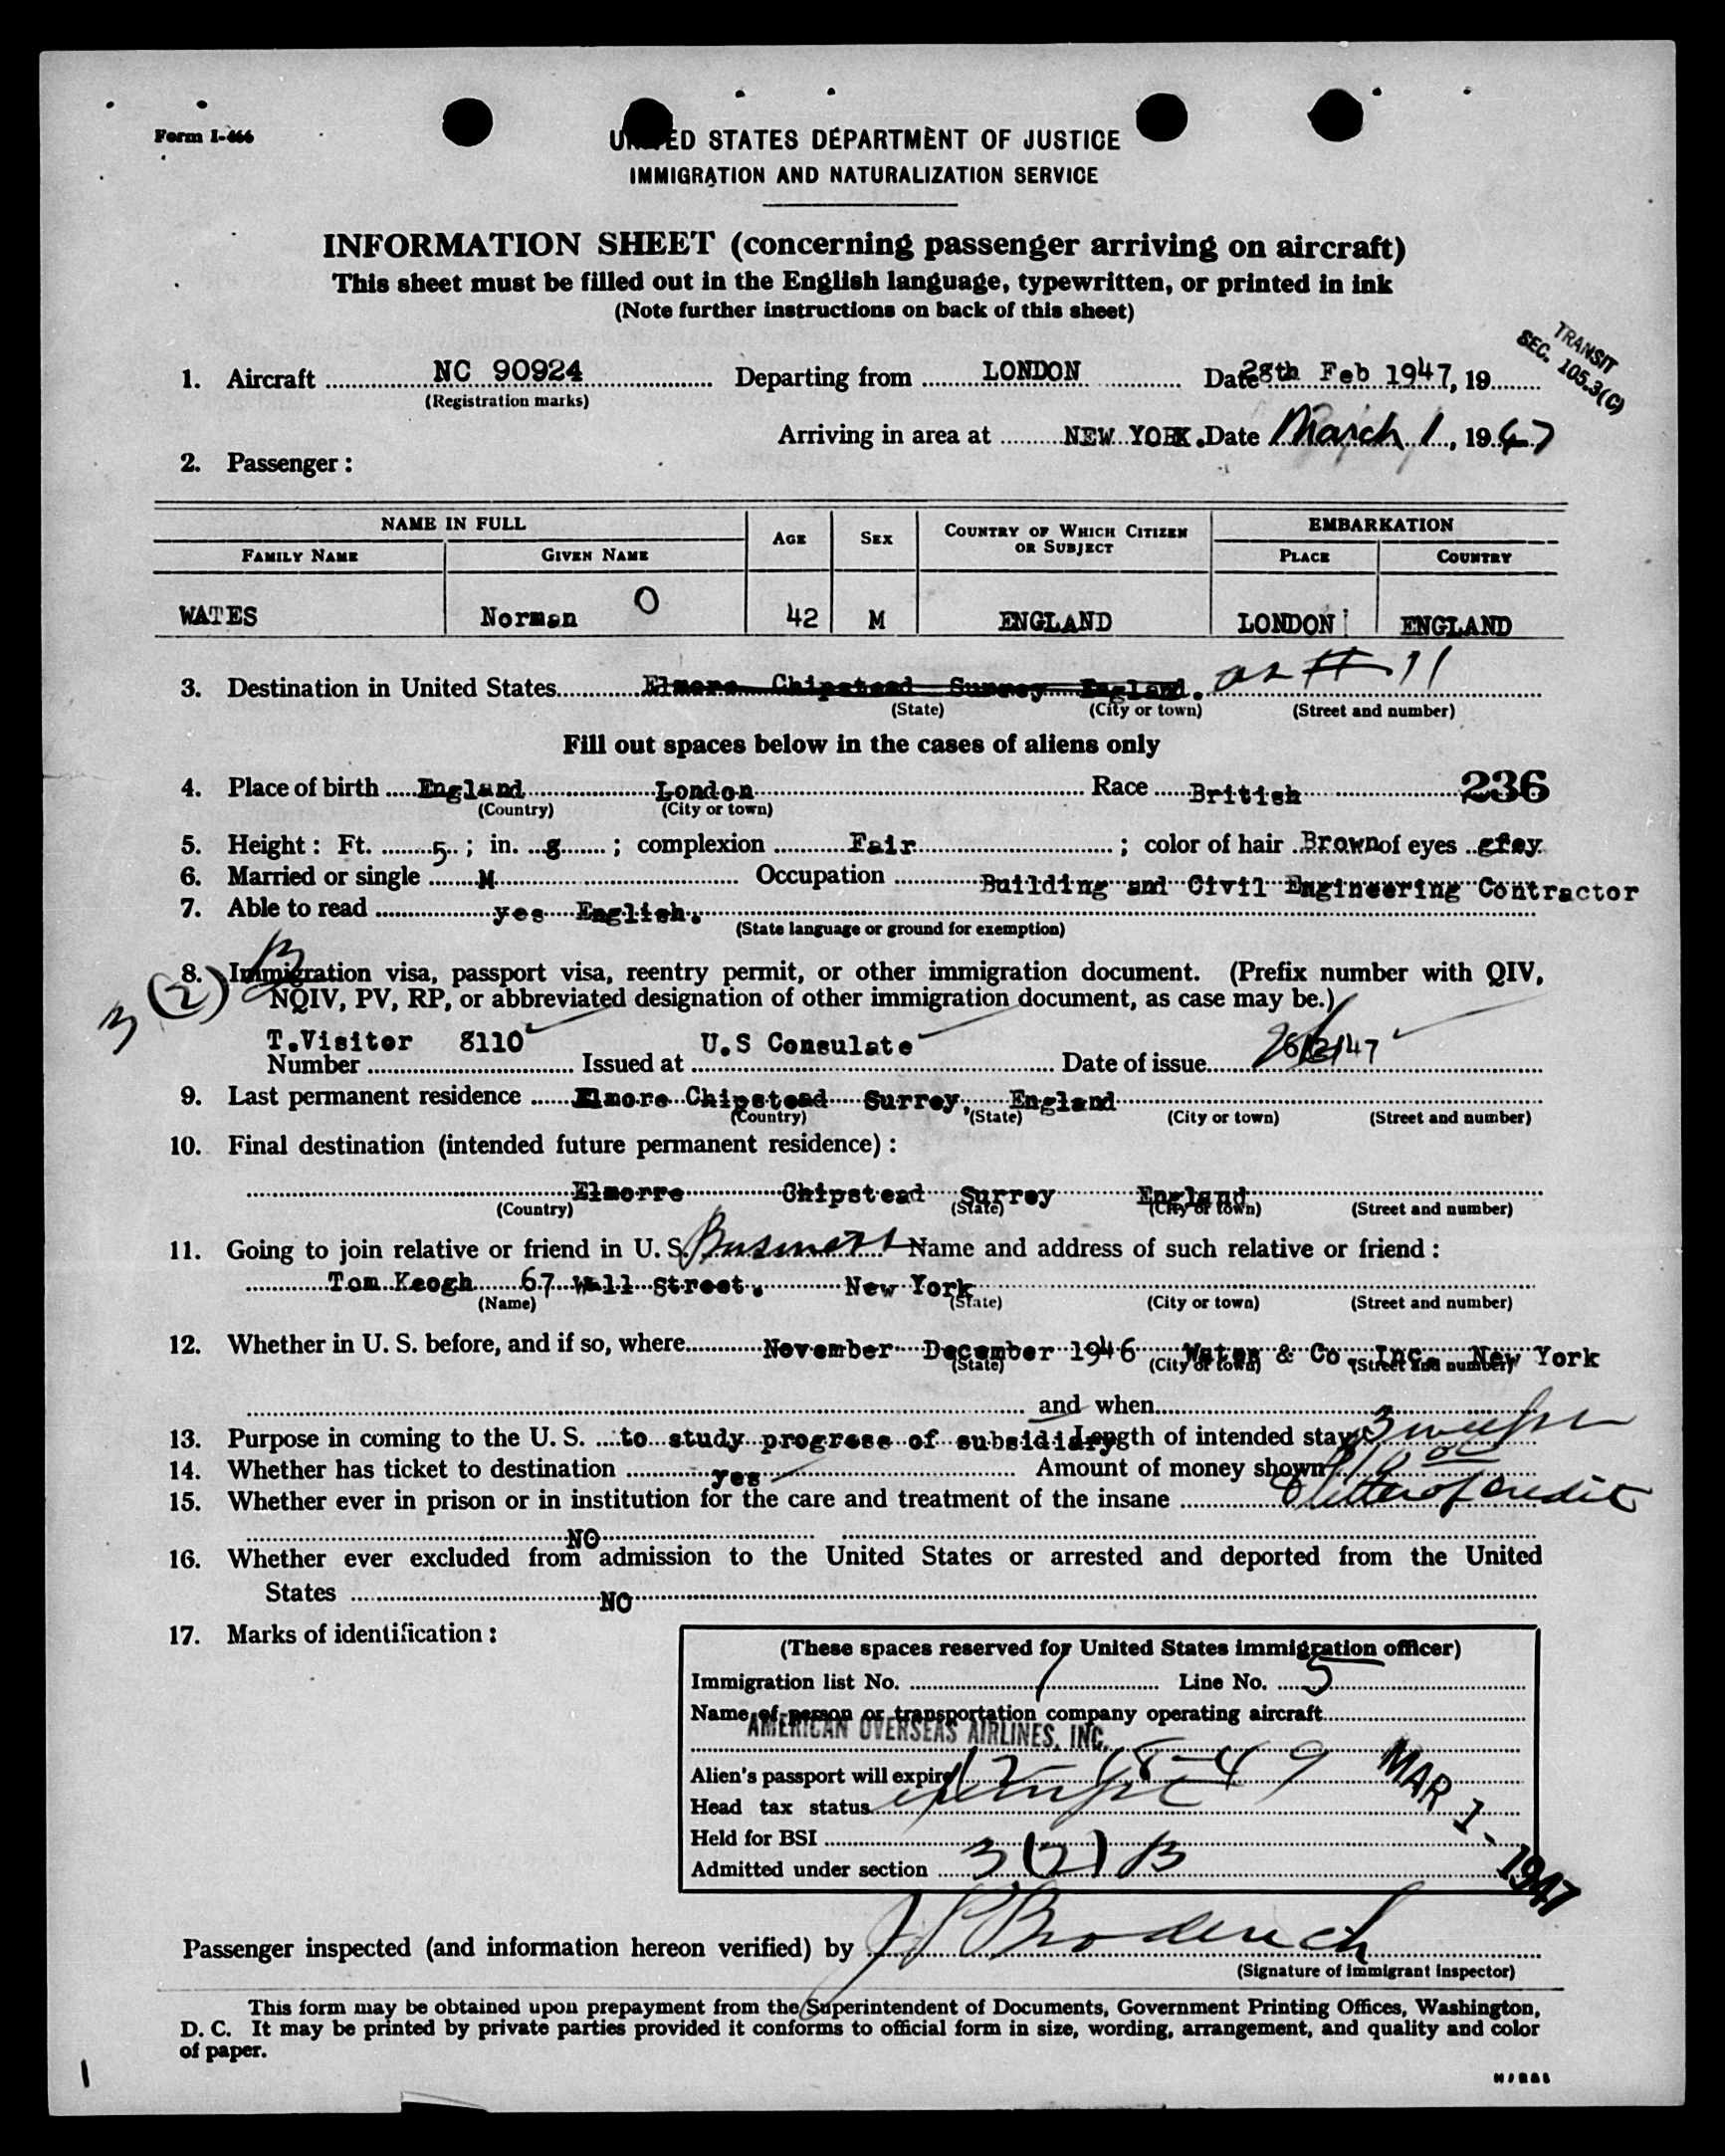 Form I-466
UNITED STATES DEPARTMENT OF JUSTICE
IMMIGRATION AND NATURALIZATION SERVICE
INFORMATION SHEET (concerning passenger arriving on aircraft)
This sheet must be filled out in the English language, typewritten, or printed in ink
(Note further instructions on back of this sheet)
TRANSIT
SEC. 105.3(C)
1. Aircraft NC 90924 Departing from LONDON Date 28th Feb 1947, 19
(Registration marks)
Arriving in area at NEW YORK. Date March 1, 1947
2. Passenger:
NAME IN FULL AGE SEX COUNTRY OF WHICH CITIZEN OR SUBJECT EMBARKATION
FAMILY NAME GIVEN NAME PLACE COUNTRY
WATES Norman O 42 M ENGLAND LONDON ENGLAND
3. Destination in United States Elmore Chipstead Surrey England. as # 11
(State) (City or town) (Street and number)
Fill out spaces below in the cases of aliens only
4. Place of birth England London Race British 236
(Country) (City or town)
5. Height: Ft. 5; in. 8; complexion Fair; color of hair Brown of eyes grey.
6. Married or single M Occupation Building and Civil Engineering Contractor
7. Able to read yes English.
(State language or ground for exemption)
3 (2) B
8. Immigration visa, passport visa, reentry permit, or other immigration document. (Prefix number with QIV,
NQIV, PV, RP, or abbreviated designation of other immigration document, as case may be.)
T.Visitor 8110 U.S Consulate 26/2/47
Number Issued at Date of issue
9. Last permanent residence Elmore Chipstead Surrey, England
(Country) (State) (City or town) (Street and number)
10. Final destination (intended future permanent residence):
Elmorre Chipstead Surrey England
(Country) (State) (City or town) (Street and number)
11. Going to join relative or friend in U. S. Business Name and address of such relative or friend:
Tom Keogh 67 Wall Street, New York
(Name) (State) (City or town) (Street and number)
12. Whether in U. S. before, and if so, where November December 1946 Wates & Co Inc. New York
(State) (City or town) (Street and number)
and when
13. Purpose in coming to the U. S. to study progress of subsidiary Length of intended stay 3 weeks
14. Whether has ticket to destination yes Amount of money shown
15. Whether ever in prison or in institution for the care and treatment of the insane letter of credit
NO
16. Whether ever excluded from admission to the United States or arrested and deported from the United
States NO
17. Marks of identification:
(These spaces reserved for United States immigration officer)
Immigration list No. 1 Line No. 5
Name of person or transportation company operating aircraft
AMERICAN OVERSEAS AIRLINES, INC.
Alien's passport will expire 12-18-49
Head tax status exempt
Held for BSI
Admitted under section 3(2) B
MAR 1 - 1947
Passenger inspected (and information hereon verified) by J P Broderick
(Signature of Immigrant Inspector)
This form may be obtained upon prepayment from the Superintendent of Documents, Government Printing Offices, Washington,
D. C. It may be printed by private parties provided it conforms to official form in size, wording, arrangement, and quality and color
of paper.
1